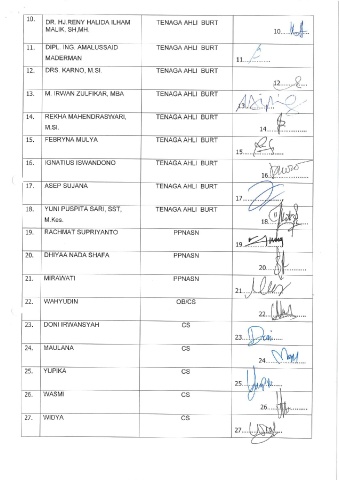 10. DR. HJ.RENY HALIDA ILHAM TENAGA AHLI BURT 10....
MALIK, SH,MH.
11. DIPL. ING. AMALUSSAID TENAGA AHLI BURT 11..........
MADERMAN
12. DRS. KARNO, M.SI. TENAGA AHLI BURT 12....
13. M. IRWAN ZULFIKAR, MBA TENAGA AHLI BURT
14. REKHA MAHENDRASWARI, TENAGA AHLI BURT 14..........
M.SI.
15. FEBRYNA MULYA TENAGA AHLI BURT 15..........
16. IGNATIUS ISWANDONO TENAGA AHLI BURT 16..........
17. ASEP SUJANA TENAGA AHLI BURT 17..........
18. YUNI PUSPITA SARI, SST, TENAGA AHLI BURT 18..........
M.Kes.
19. RACHMAT SUPRIYANTO PPNASN 19
20. DHIYAA NADA SHAFA PPNASN 20..........
21. MIRAWATI PPNASN 21
22. WAHYUDIN OB/CS 22..........
23. DONI IRWANSYAH CS 23.... Doni
24. MAULANA CS 24..........
25. YUPIKA CS 25....
26. WASMI CS 26..........
27. WIDYA CS 27..........